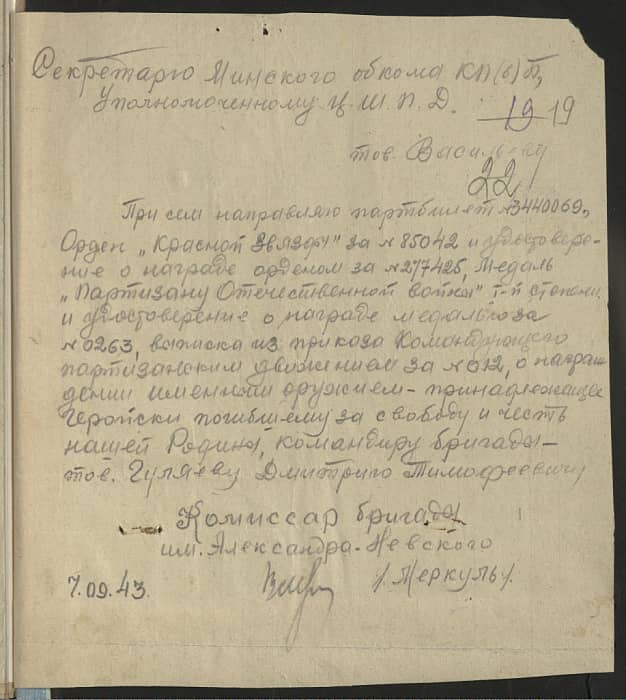 Секретарю Минского обкома КП(б)Б,
Уполномоченному Ц.Ш.П.Д.
19 19
тов. Васильеву
22
При сем направляю партбилет №3440069,
Орден „Красной Звязды" за №85042 и удостовере-
ние о награде орденом за №277425, Медаль
„Партизану Отечественной войны" I-й степени
и удостоверение о награде медалью за
№0263, выписка из приказа Командующего
партизанским движением за №012, о награж
дении именным оружием – принадлежащее
Геройски погибшему за свободу и честь
нашей Родины, командиру бригады –
тов. Гуляеву Дмитрию Тимофеевичу
Комиссар бригады
им. Александра-Невского
7.09.43. /Меркуль/.